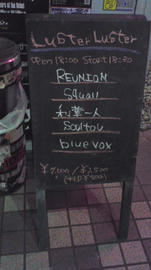 Luster Luster
Open 18:00 Start 18:30
REUNION
Squall
和葉一人
Soultou
blue vox
¥2,000 / ¥2,500